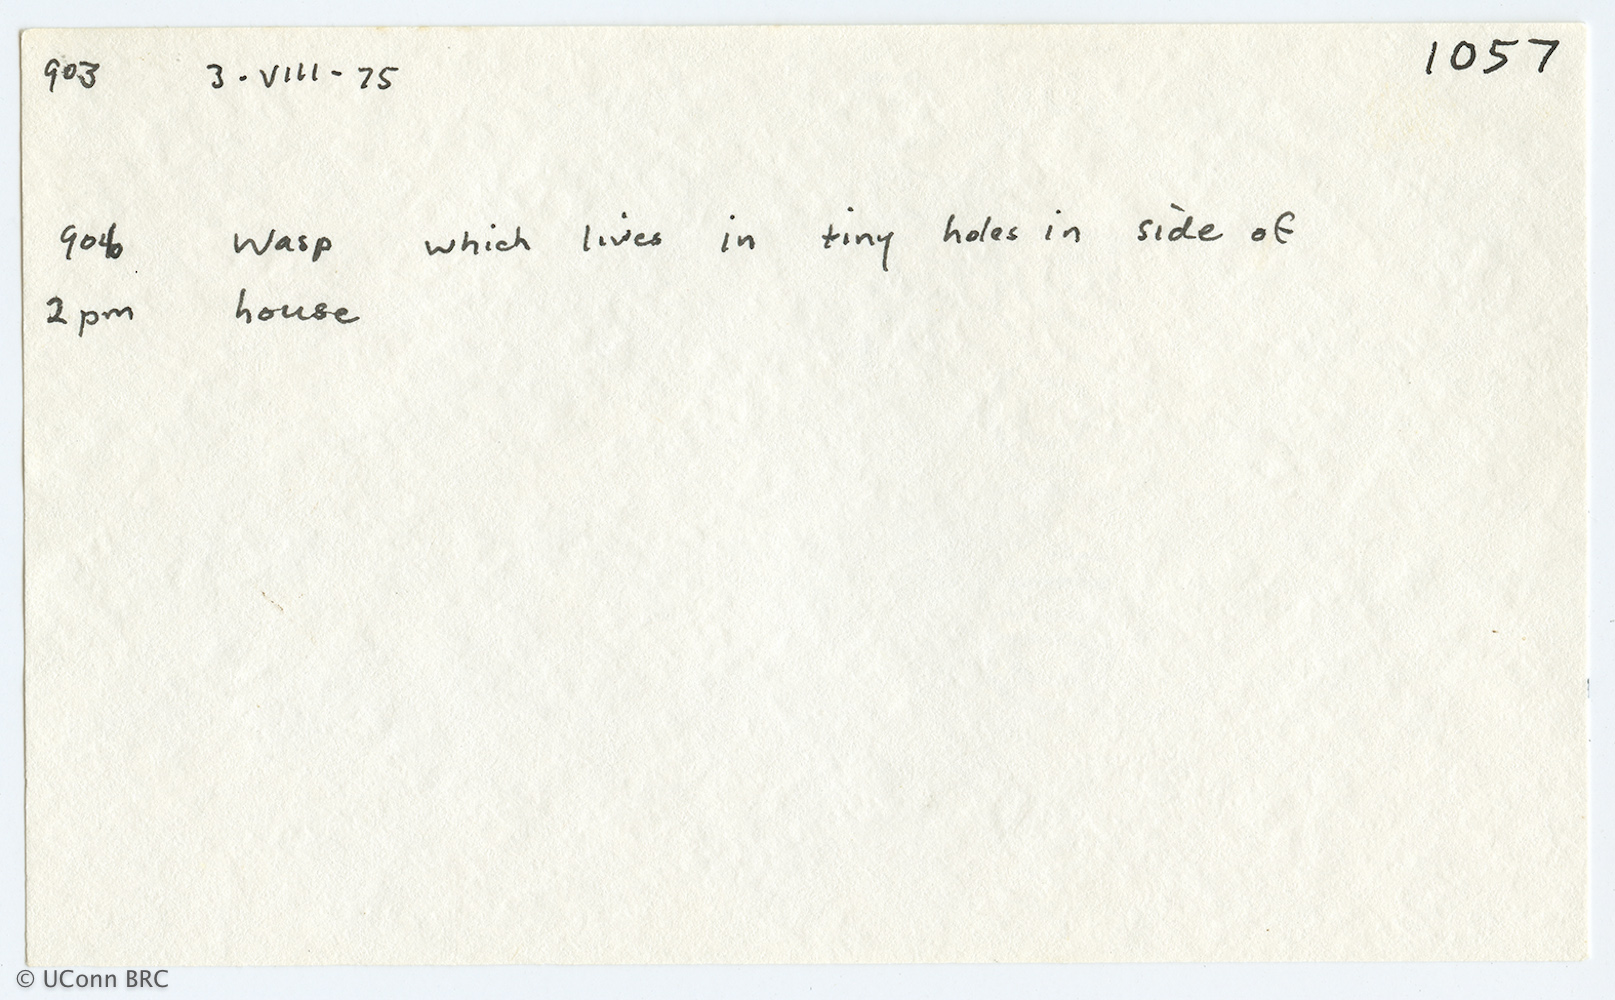 903 3-VIII-75 1057
Wasp which lives in tiny holes in side of
2 pm house
© UConn BRC